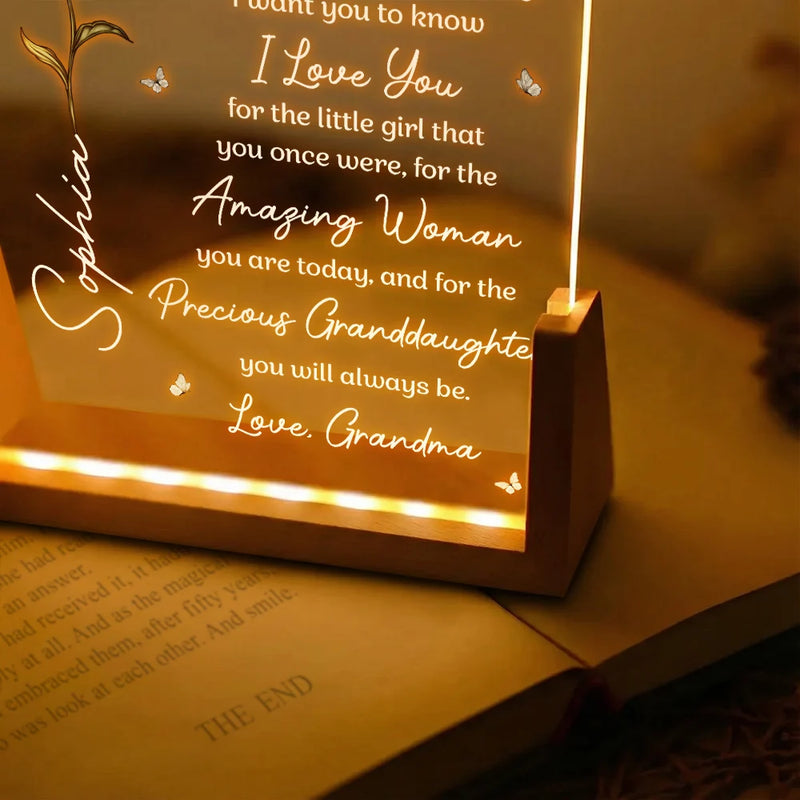 I want you to know
I Love You
for the little girl that
you once were, for the
Amazing Woman
you are today, and for the
Precious Granddaughte
you will always be.
Love, Grandma
Sophia
he had
an answer.
had received it, it had
ly at all. And as the magical
embraced them, after fifty years,
was look at each other. And smile.
THE END